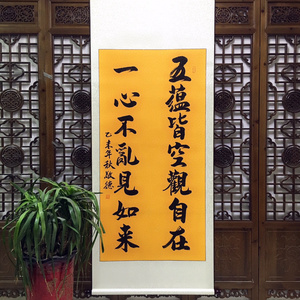 五蕴皆空觀自在
一心不亂見如来
乙未年秋敬德